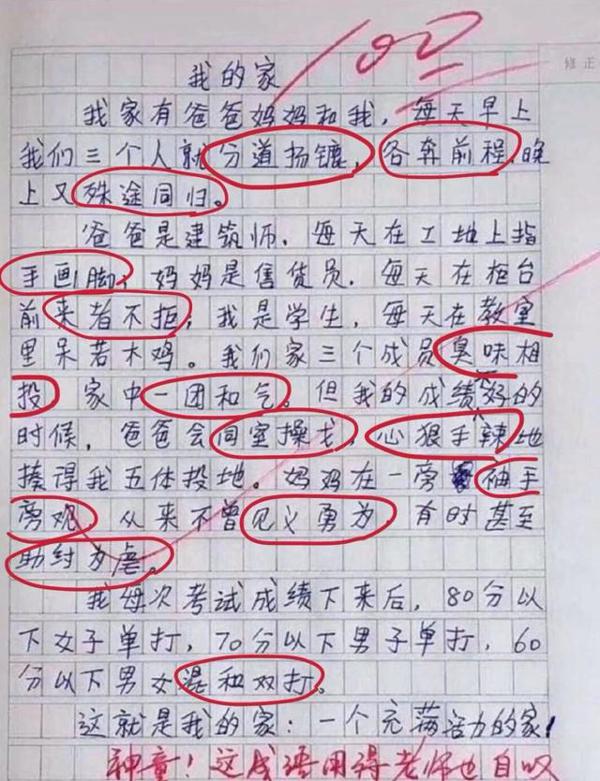 100
修正
我的家
我家有爸爸妈妈和我,每天早上
我们三个人就分道扬镳,各奔前程,晚
上又殊途同归。
爸爸是建筑师,每天在工地上指
手画脚;妈妈是售货员,每天在柜台
前来者不拒;我是学生,每天在教室
里呆若木鸡。我们家三个成员臭味相
投,家中一团和气。但我的成绩不好的
时候,爸爸会同室操戈,心狠手辣地
揍得我五体投地。妈妈在一旁袖手
旁观,从来不曾见义勇为,有时甚至
助纣为虐。
我每次考试成绩下来后,80分以
下女子单打,70分以下男子单打,60
分以下男女混和双打。
这就是我的家:一个充满活力的家!
神童!这成语用得老师也自叹